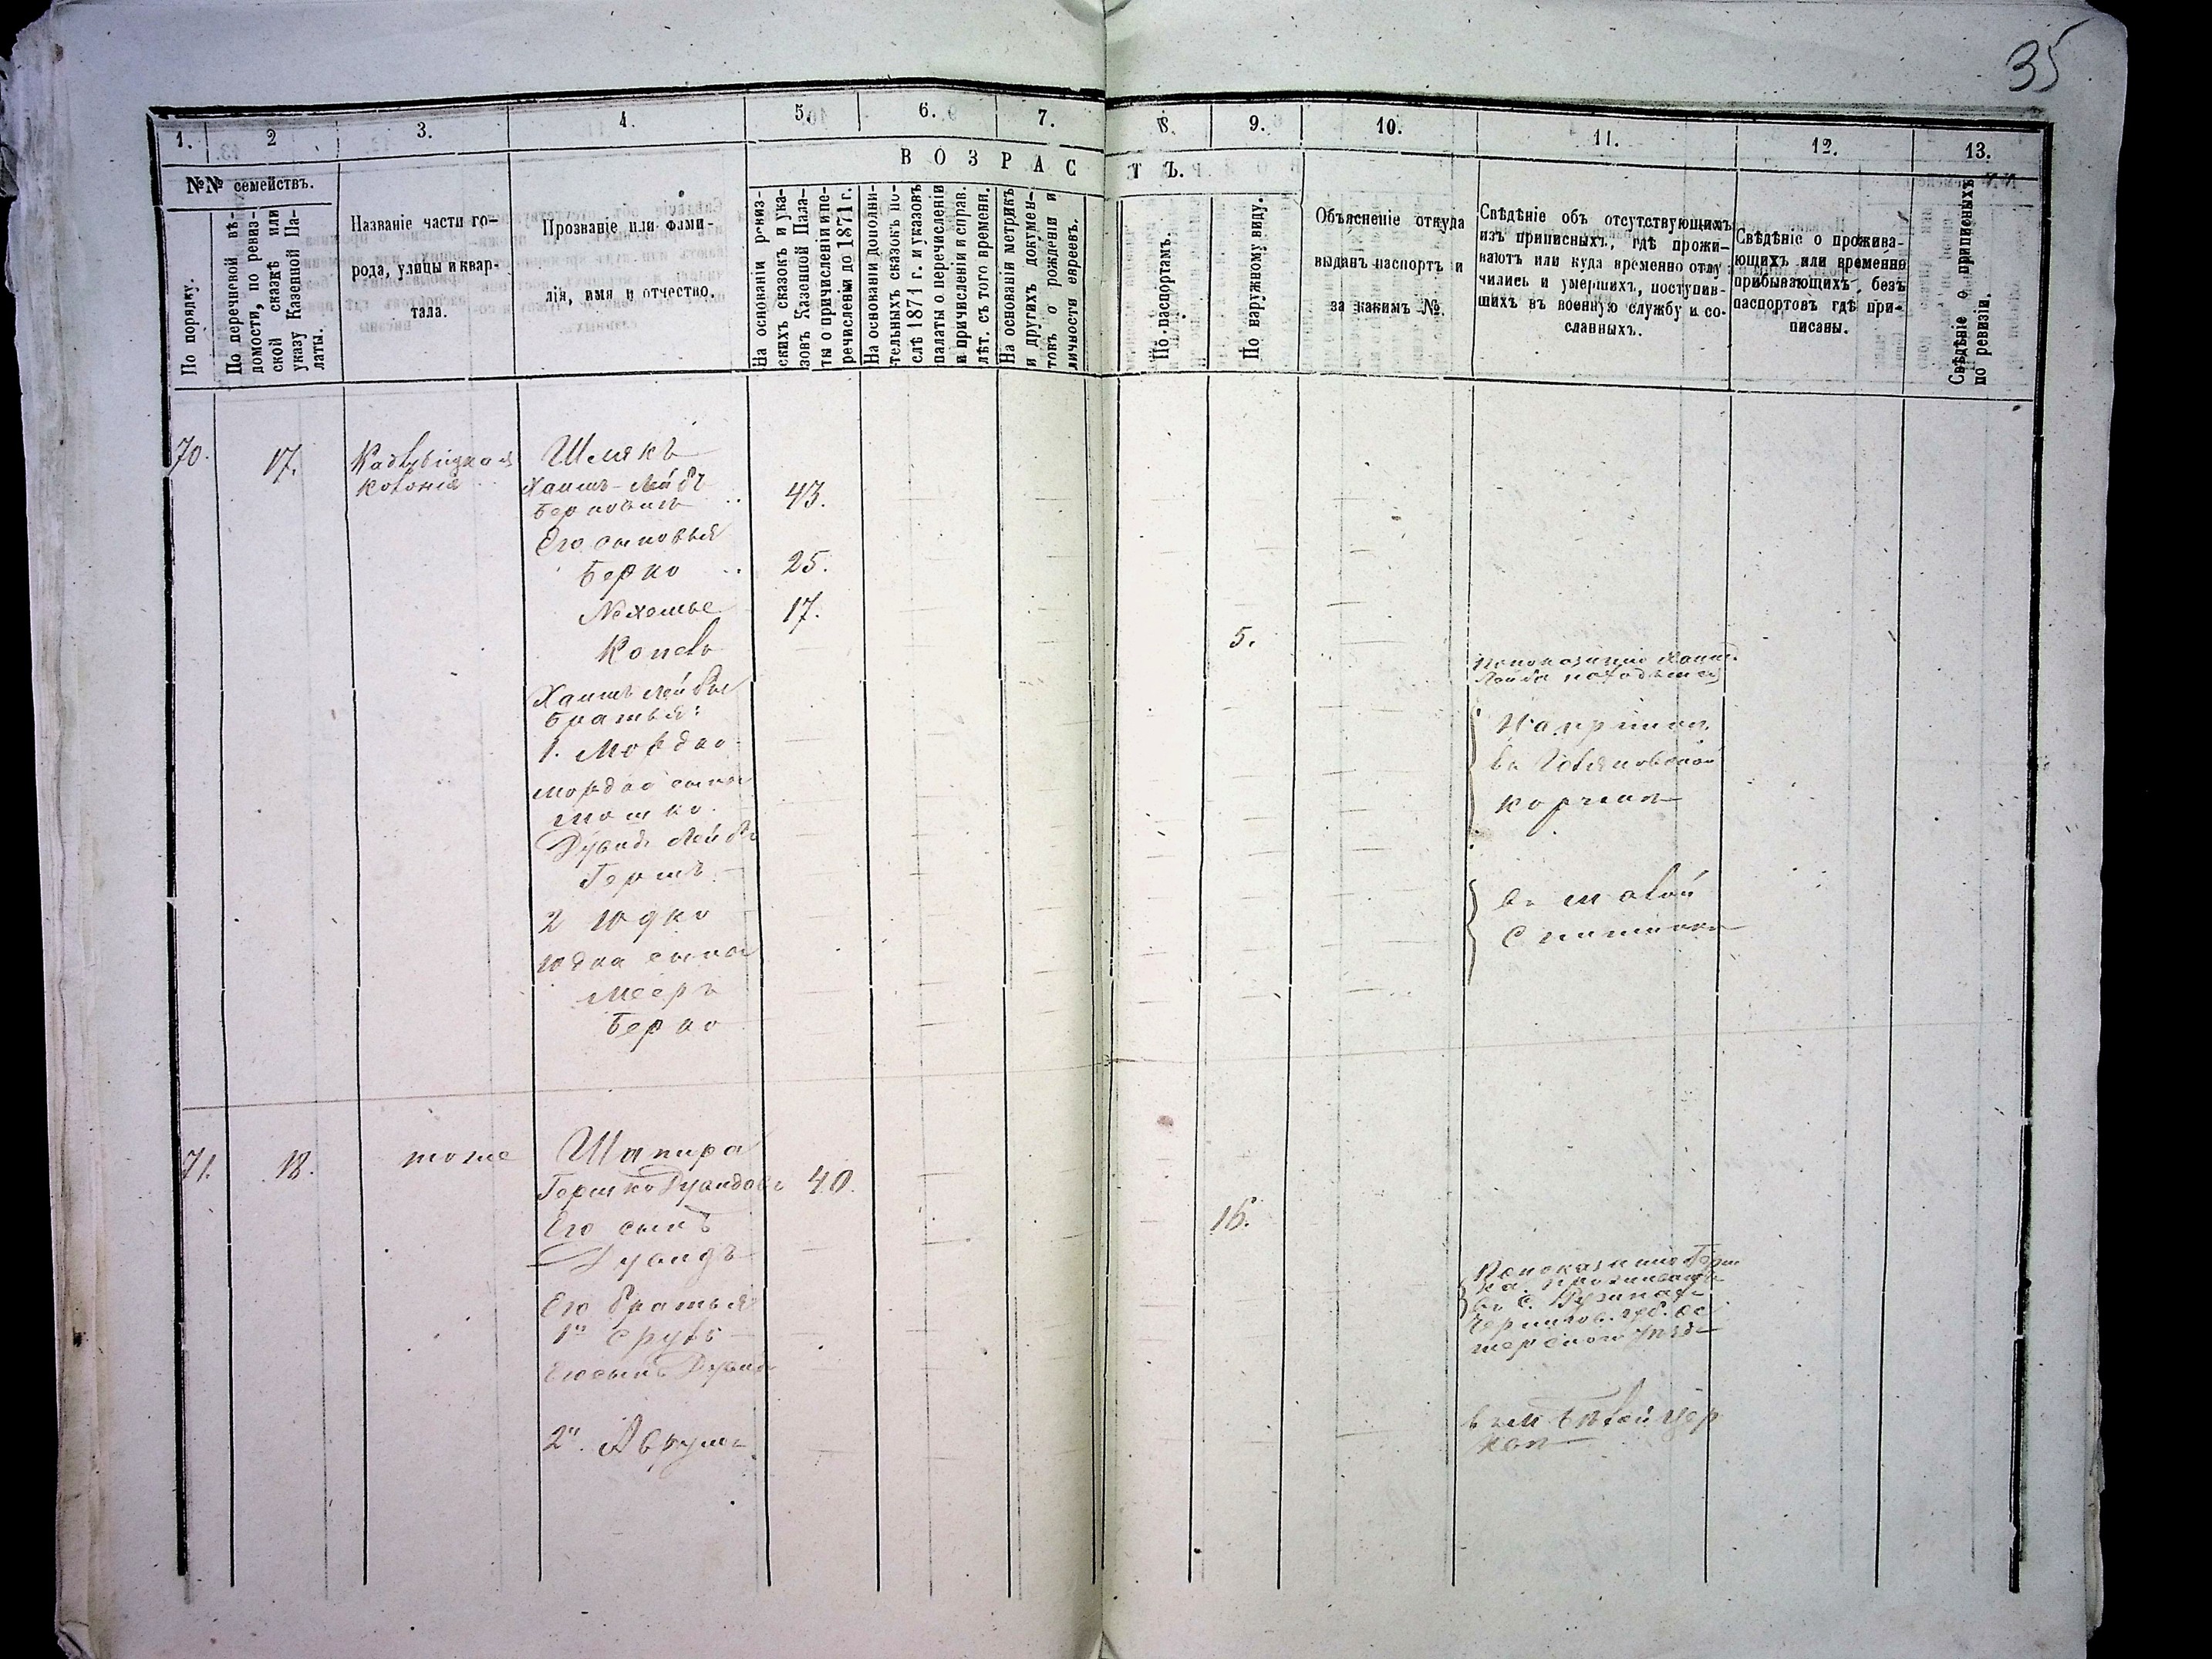 35
1. 2 3. 4. 5. 6. 7. 8. 9. 10. 11. 12. 13.
№№ семействъ.
В О З Р А С Т Ъ.
По порядку.
По перечневой вѣ-
домости, по ревиз-
ской сказкѣ или
указу Казенной Па-
латы.
Названіе части го-
рода, улицы и квар-
тала.
Прозваніе или фами-
лія, имя и отчество.
На основаніи ревиз-
скихъ сказокъ и ука-
зовъ Казенной Пала-
ты о причисленіи и пе-
речисленіи до 1871 г.
На основаніи дополни-
тельныхъ сказокъ по-
слѣ 1871 г. и указовъ
палаты о перечисленіи
и причисленіи и справ.
лѣт. съ того времени.
На основаніи метрикъ
и другихъ докумен-
товъ о рожденіи и
личности евреевъ.
По паспортамъ.
По наружному виду.
Объясненіе откуда
выданъ паспортъ и
за какимъ №.
Свѣдѣніе объ отсутствующихъ
изъ приписныхъ, гдѣ прожи-
ваютъ или куда временно отлу
чились и умершихъ, поступив-
шихъ въ военную службу и со-
сланныхъ.
Свѣдѣніе о прожива-
ющихъ или временно
прибывающихъ, безъ
паспортовъ гдѣ при-
писаны.
Свѣдѣніе о приписныхъ
по ревизіи.
70. 17. колонія Шмякъ
Хаимъ-Лейбъ
Берковичъ 43.
Его сыновья
Берко 25.
17.
Копель 5.
Хаимъ Лейбы
братья:
1. Мордко
Мордко сына
Мошко
Дувидъ Лейбъ
Гершъ
2 Юдко
Юдка сына
Мееръ
Берко
корчмѣ
71. 18. тоже Шапира
Гершко Дувидовъ 40
Его сынъ 16.
Дувидъ
Его братья
1й Сруль
Его сынъ Дувидъ
2й. Аврумъ